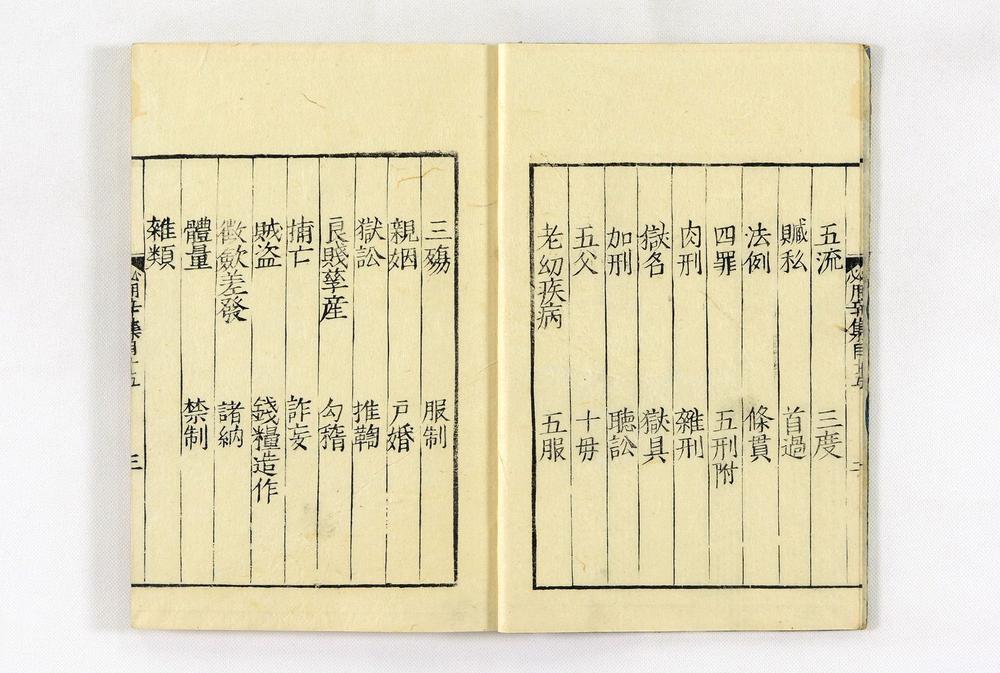 五流 三度
贓私 首過
法例 條貫
四罪 五刑附
肉刑 雜刑
獄名 獄具
加刑 聽訟
五父 十毋
老幼疾病 五服
三殤 服制
親姻 戸婚
獄訟 推鞫
良賤孳産 勾稽
捕亡 詐妄
賊盗 錢糧造作
徵歛差發 諸納
體量 禁制
雜類
必用辛集目 三